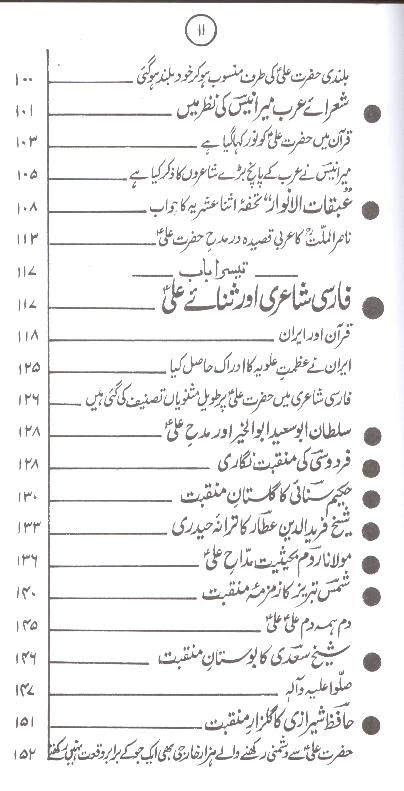 ۱۱
بلندی حضرت علیؑ کی طرف منسوب ہو کر خود بلند ہو گئی ۱۰۰
شعرائے عرب میر انیسؔ کی نظر میں ۱۰۱
قرآن میں حضرت علیؑ کو نور کہا گیا ہے ۱۰۳
میر انیسؔ نے عرب کے پانچ بڑے شاعروں کا ذکر کیا ہے ۱۰۵
”عبقات الانوار“ تحفۂ اثنا عشریہ کا جواب ۱۰۸
ناصر الملّتؒ کا عربی قصیدہ در مدحِ حضرت علیؑ ۱۱۳
تیسرا باب ۱۱۷
فارسی شاعری اور ثنائے علیؑ ۱۱۷
قرآن اور ایران ۱۱۸
ایران نے عظمتِ علویہ کا ادراک حاصل کیا ۱۲۵
فارسی شاعری میں حضرت علیؑ پر طویل مثنویاں تصنیف کی گئی ہیں ۱۲۶
سلطان ابو سعید ابوالخیر اور مدحِ علیؑ ۱۲۸
فردوسی کی منقبت نگاری ۱۲۸
حکیم سنائی کا گلستانِ منقبت ۱۳۰
شیخ فرید الدین عطار کا ترانۂ حیدری ۱۳۳
مولانا روم بحیثیت مدّاحِ علیؑ ۱۳۶
شمس تبریز کا زمزمۂ منقبت ۱۴۰
دم ہمہ دم علیؑ علیؑ ۱۴۵
شیخ سعدی کا بوستانِ منقبت ۱۴۶
صلّوا علیہ وآلہٖ ۱۴۷
حافظ شیرازی کا گلزارِ منقبت ۱۵۱
حضرت علیؑ سے دشمنی رکھنے والے ہزار خارجی بھی ایک جو کے برابر وقعت نہیں رکھتے ۱۵۲